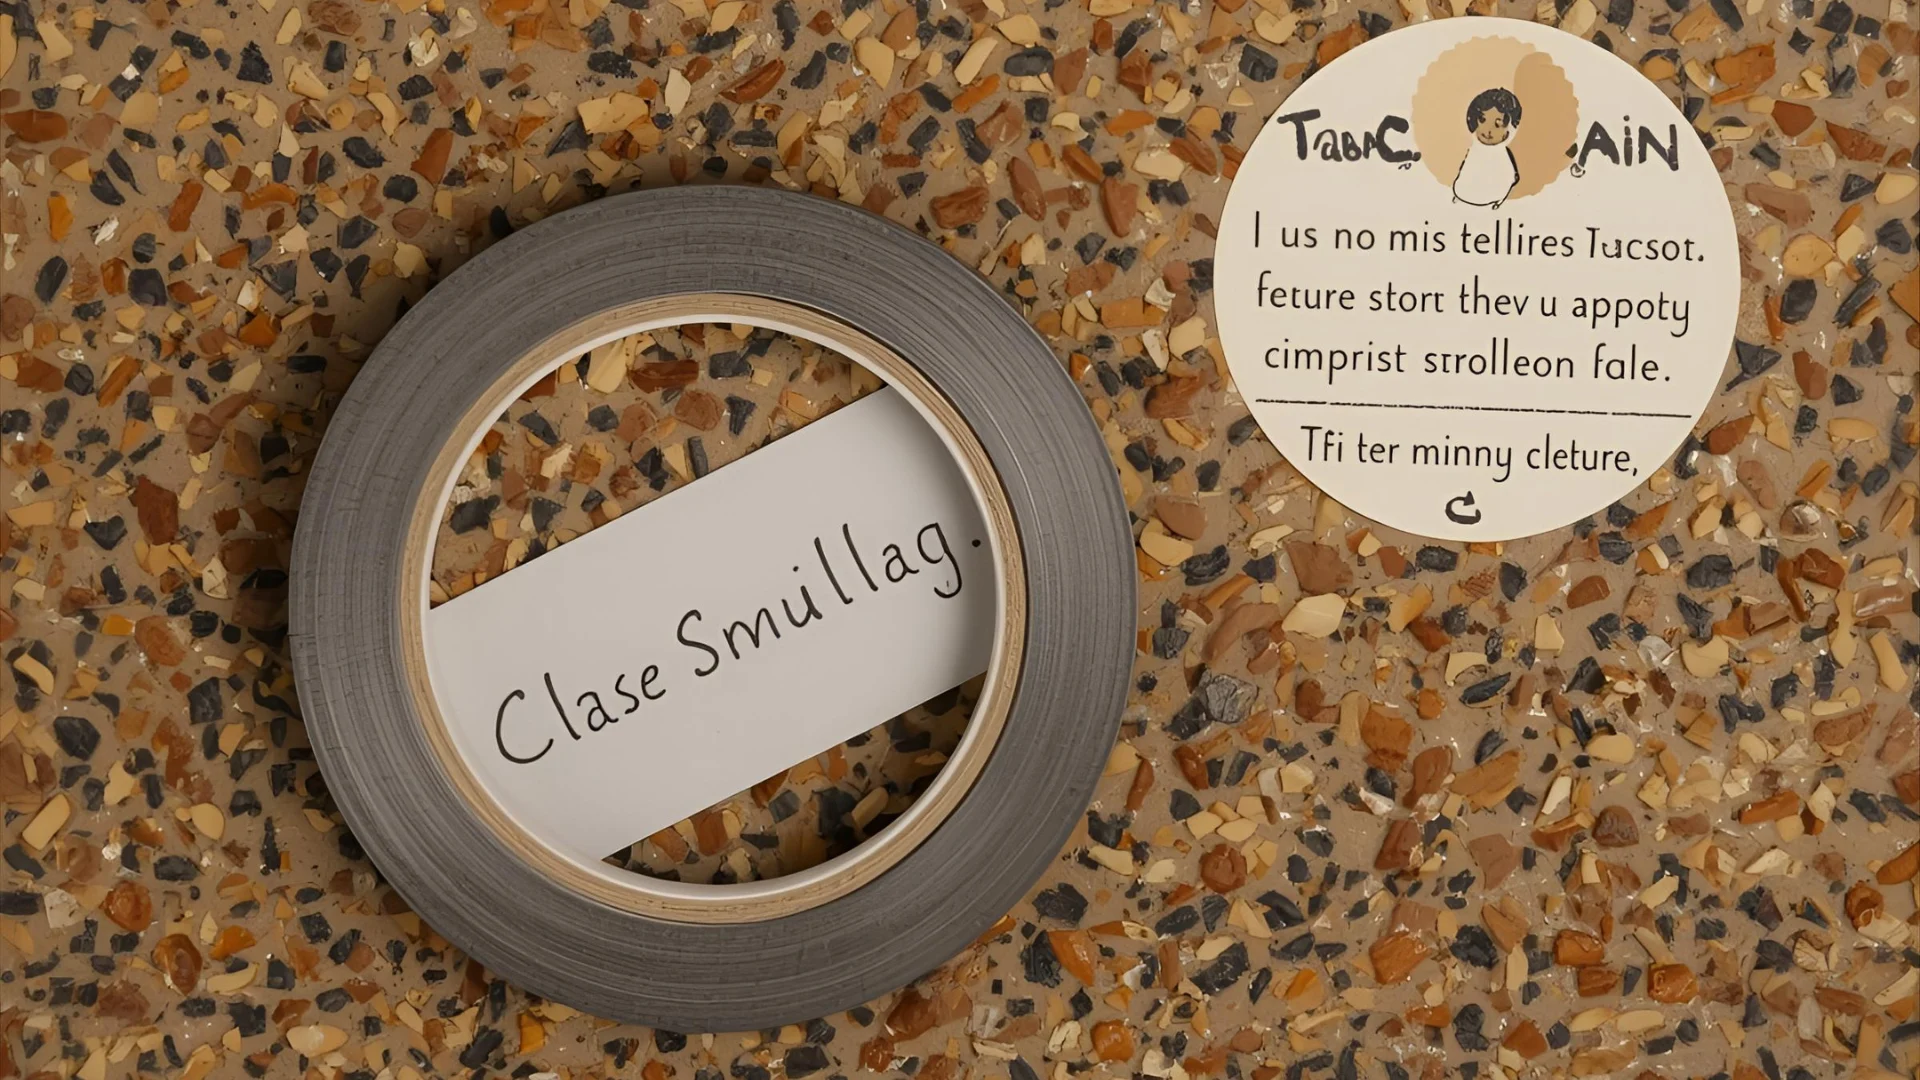 Clase Smullag.
TabAC. .AiN
I us no mis tellires Tucsot.
feture stort thev u appoty
cimprist strolleon fale.
Tfi ter minny cleture,